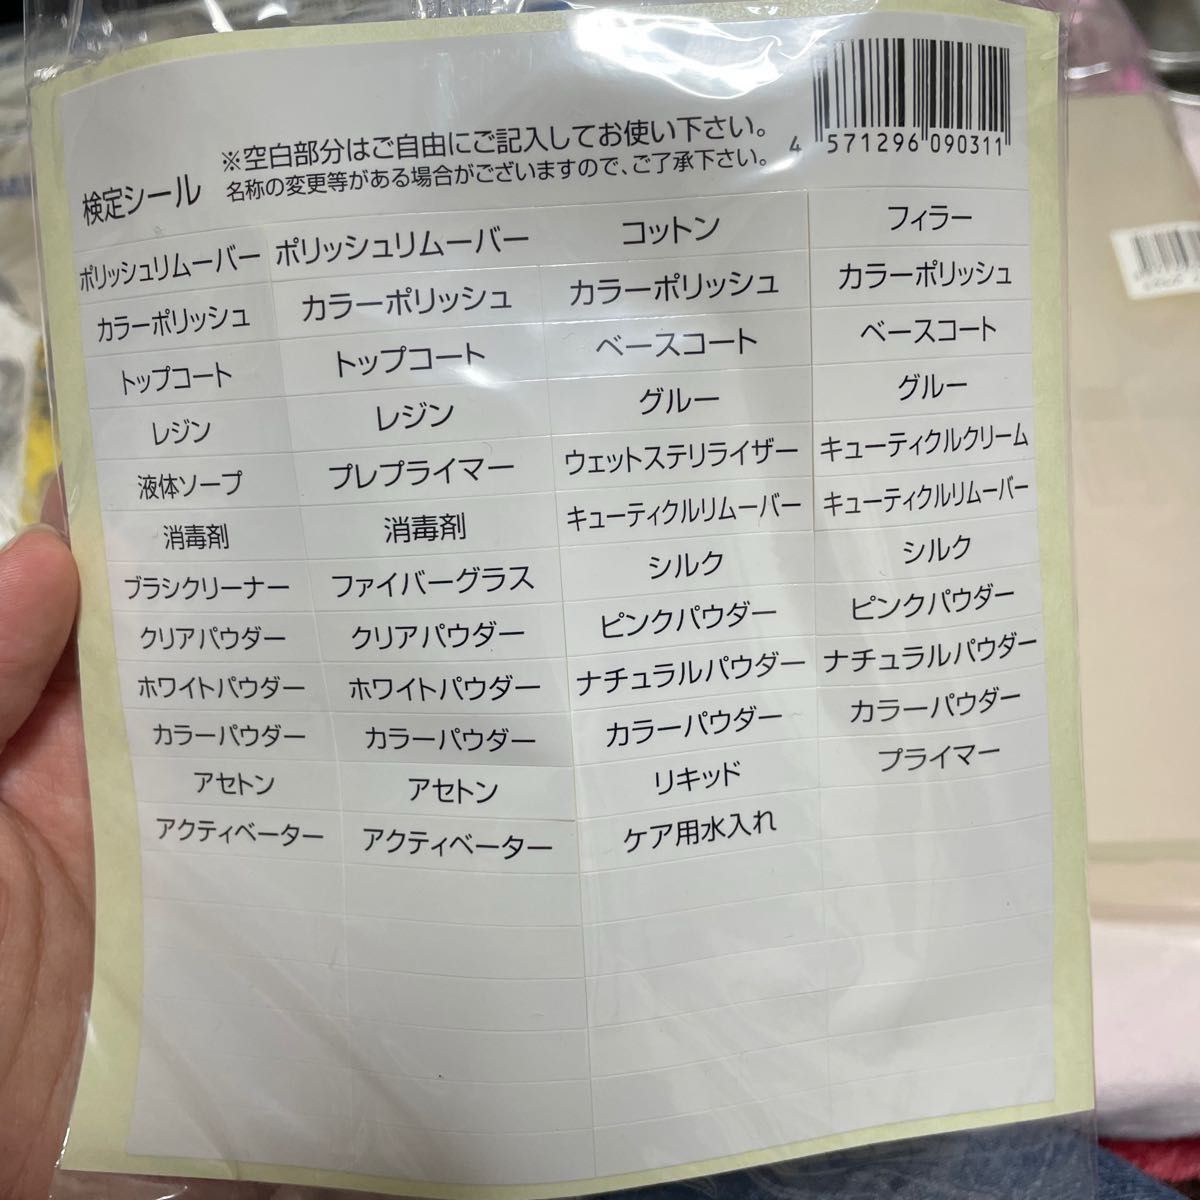 検定シール
※空白部分はご自由にご記入してお使い下さい。
名称の変更等がある場合がございますので、ご了承下さい。
4 571296 090311
ポリッシュリムーバー ポリッシュリムーバー コットン フィラー
カラーポリッシュ カラーポリッシュ カラーポリッシュ カラーポリッシュ
トップコート トップコート ベースコート ベースコート
レジン レジン グルー グルー
液体ソープ プレプライマー ウェットステリライザー キューティクルクリーム
消毒剤 消毒剤 キューティクルリムーバー キューティクルリムーバー
ブラシクリーナー ファイバーグラス シルク シルク
クリアパウダー クリアパウダー ピンクパウダー ピンクパウダー
ホワイトパウダー ホワイトパウダー ナチュラルパウダー ナチュラルパウダー
カラーパウダー カラーパウダー カラーパウダー カラーパウダー
アセトン アセトン リキッド プライマー
アクティベーター アクティベーター ケア用水入れ